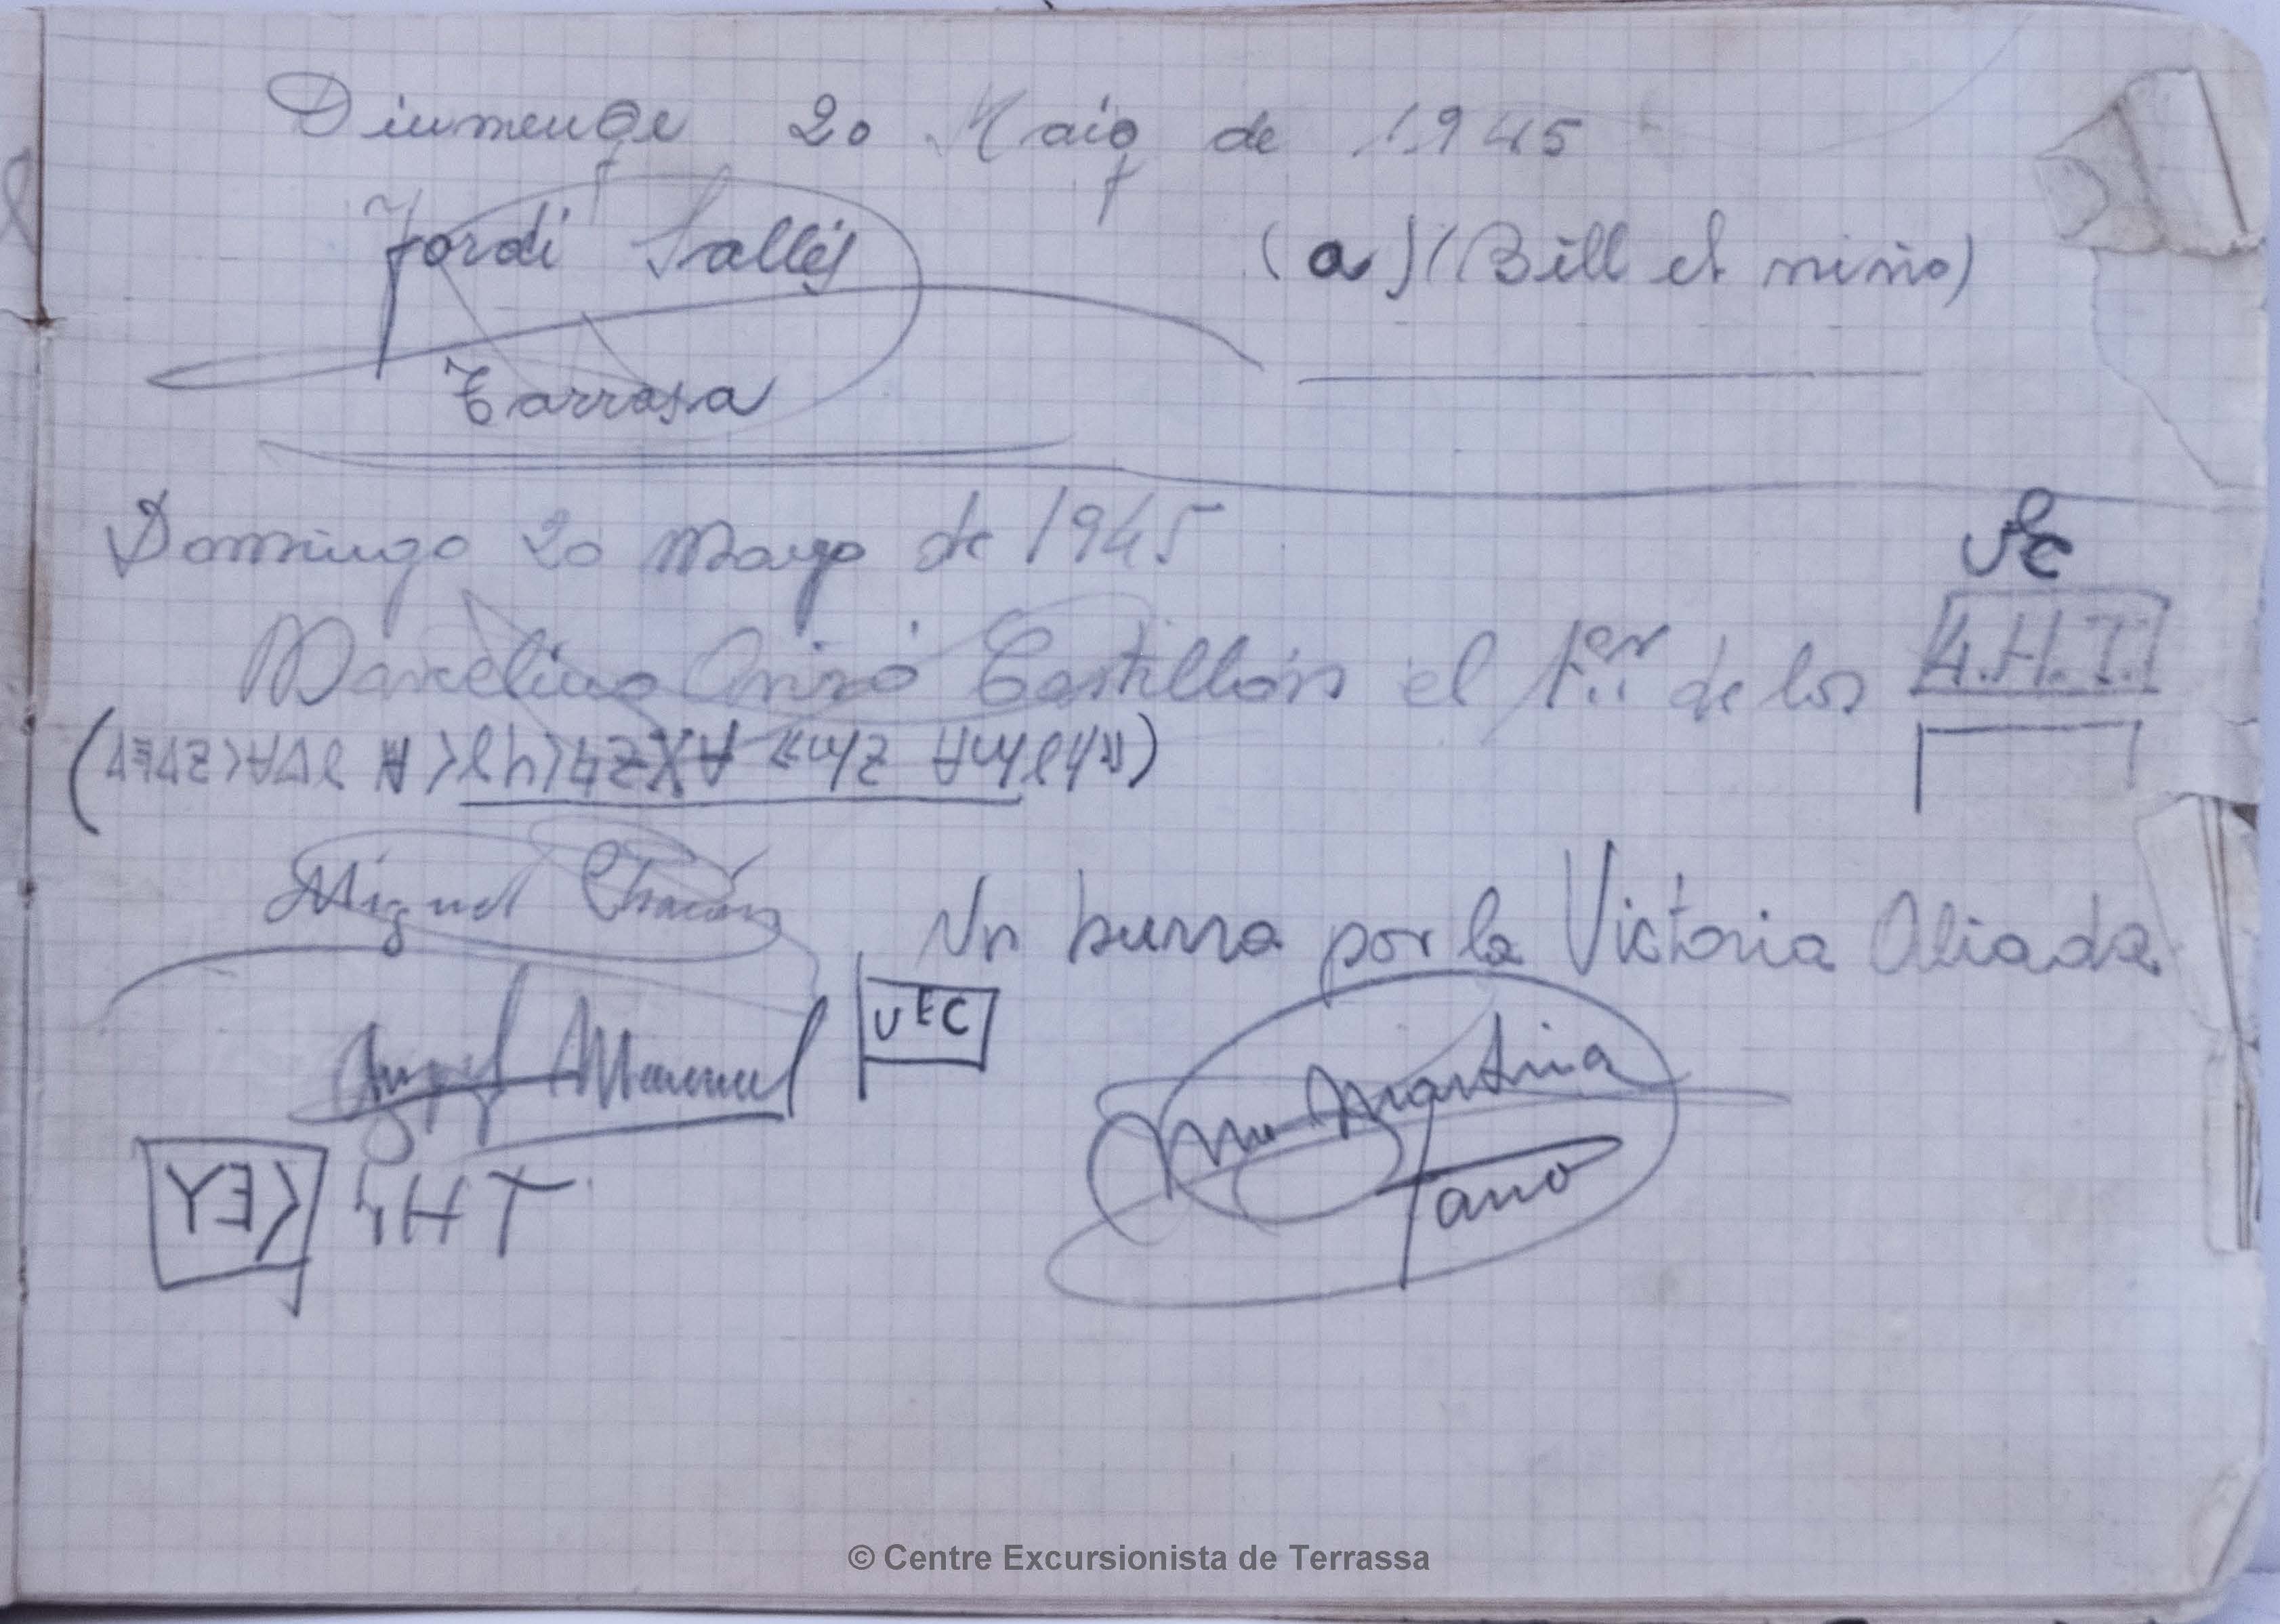 Diumenge 20 Maig de 1945
Jordi Sallés (a) (Bill el niño)
Tarrasa
Domingo 20 Mayo de 1945
Marcelino Castillón el 1er de los A.H.T.
Miguel Chacón
Un hurra por la Victoria Aliada
Angel Manuel
UEC
Martina
Tano
© Centre Excursionista de Terrassa